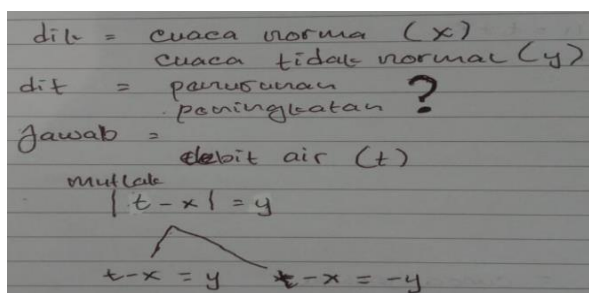 dik = cuaca norma (x)
cuaca tidak normal (y)
dit = panurunan
paningkatan ?
Jawab =
debit air (t)
mutlak
|t - x| = y
t - x = y t - x = -y